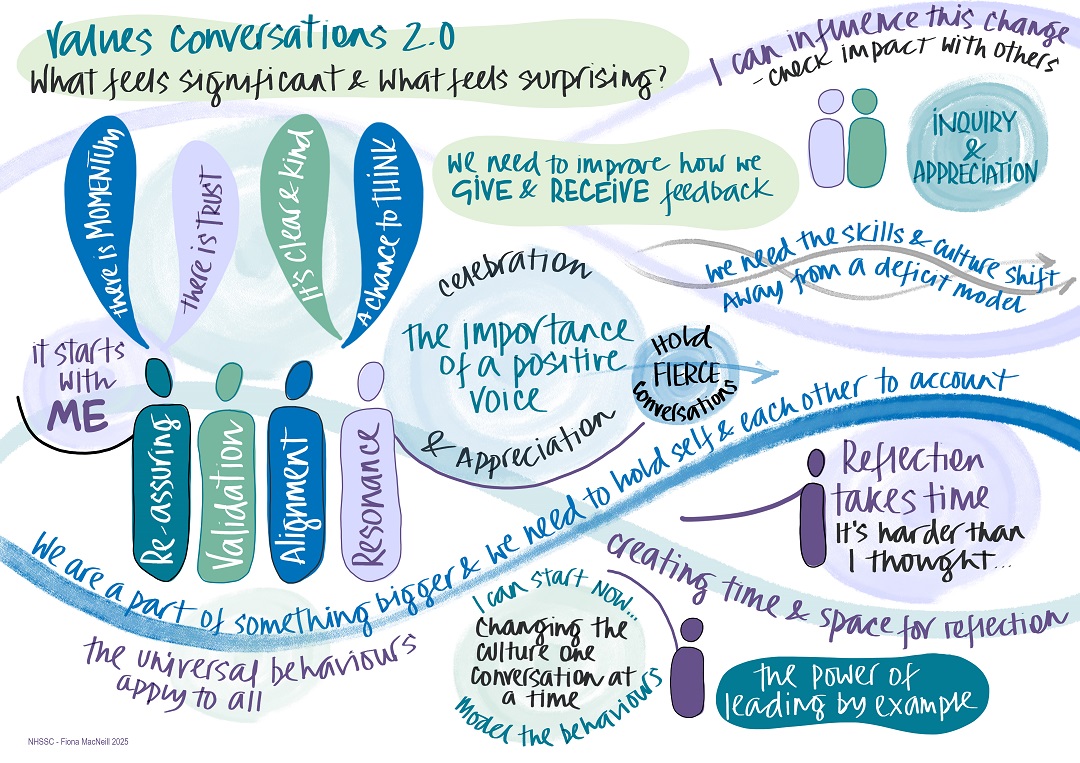 Values Conversations 2.0
What feels significant & What feels surprising?
I can influence this change
- check impact with others
INQUIRY
&
APPRECIATION
there is MOMENTUM
there is TRUST
It's clear & kind
A chance to THINK
we need to improve how we
GIVE & RECEIVE feedback
we need the skills & culture shift
away from a deficit model
it starts
with
ME
Re-assuring
Validation
Alignment
Resonance
celebration
the importance
of a positive
voice
& Appreciation
Hold
FIERCE
Conversations
We are a part of something bigger & we need to hold self & each other to account
Reflection
takes time
It's harder than
I thought...
creating time & space for reflection
the universal behaviours
apply to all
I can start now...
Changing the
culture one
conversation at
a time
Model the behaviours
the power of
leading by example
NHSSC - Fiona MacNeill 2025